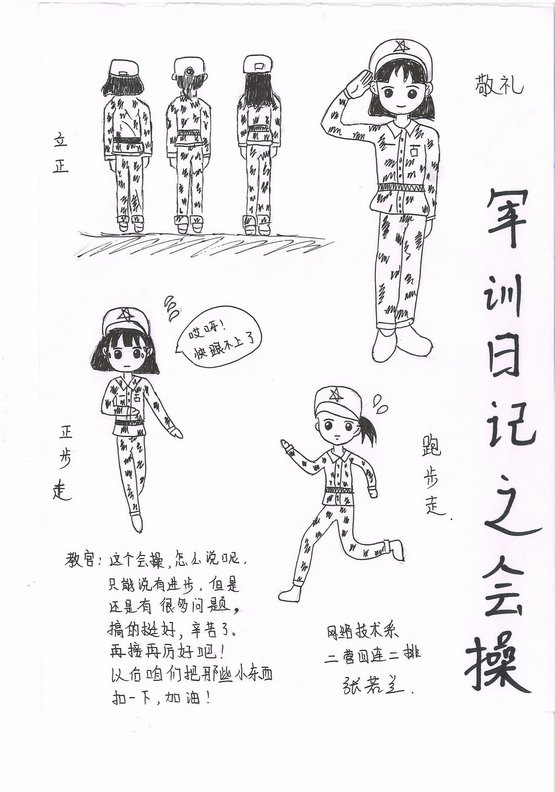 敬礼
立正
军训日记之会操
哎呀！
快跟不上了
正步走
跑步走.
教官：这个会操,怎么说呢.
只能说有进步.但是
还是有很多问题。
搞的挺好,辛苦了.
再接再厉好吧！
以后咱们把那些小东西
扣一下,加油！
网络技术系
二营四连二排
张若兰.